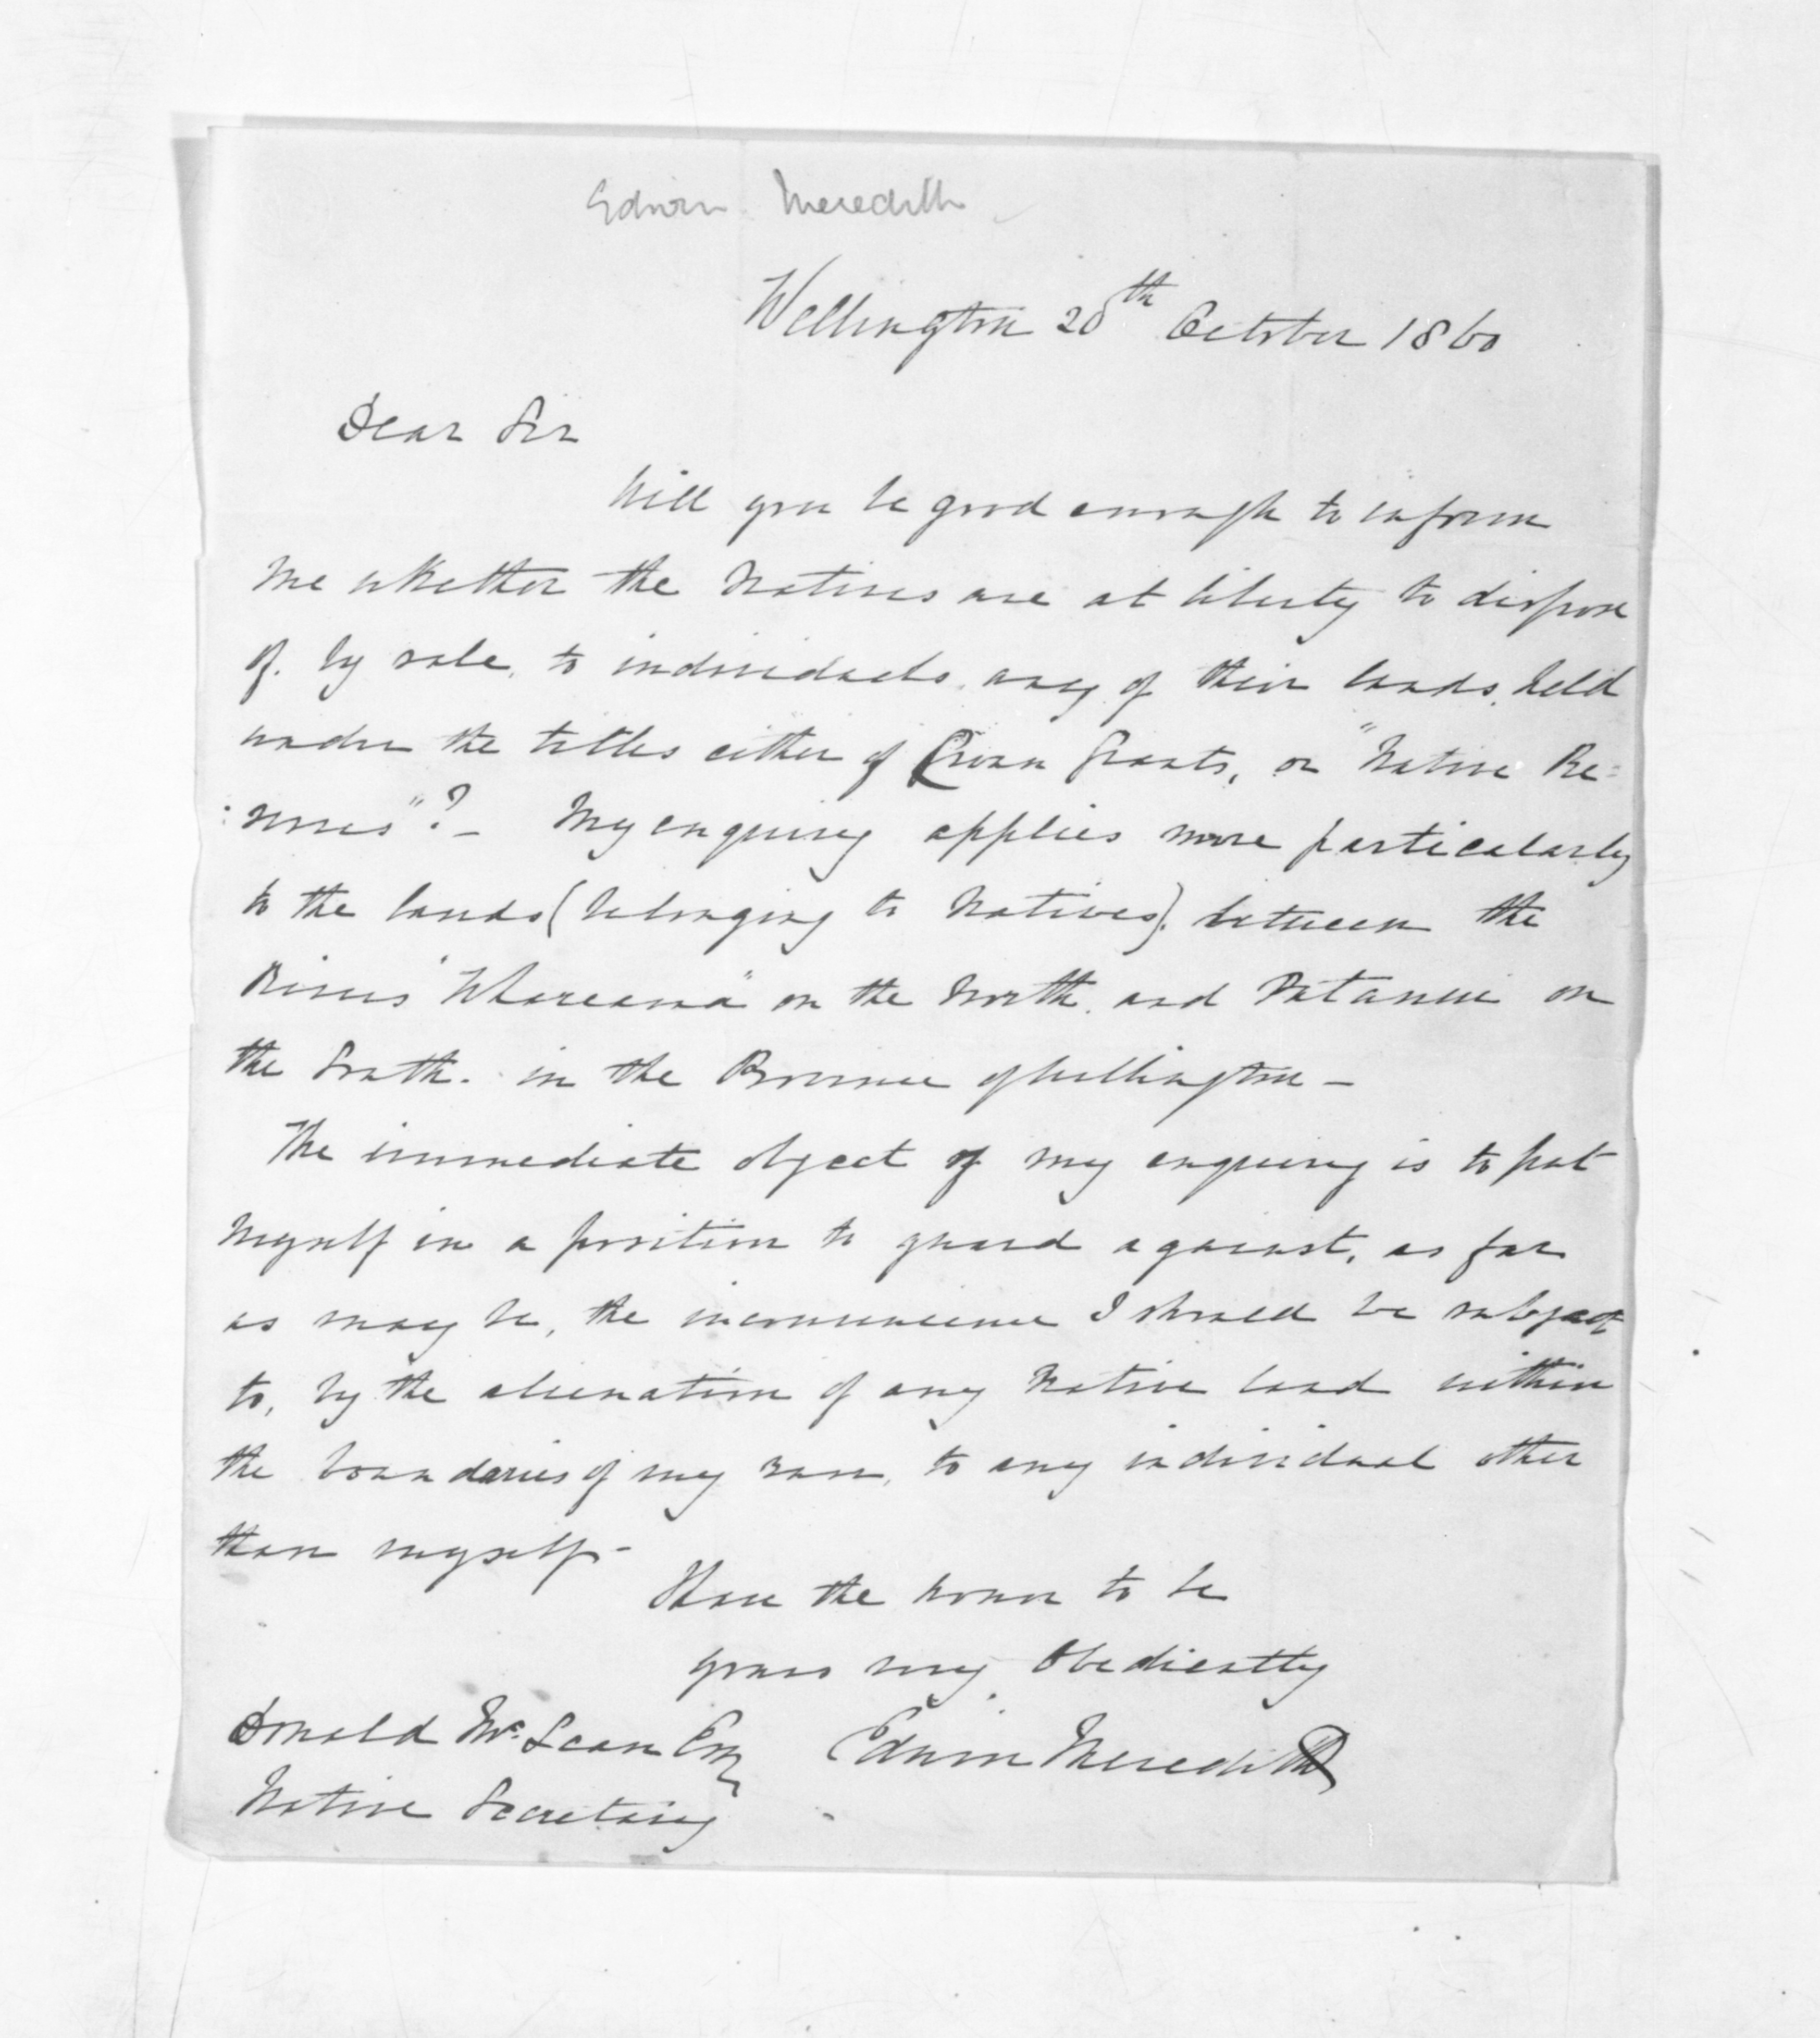 Edwin Meredith
Wellington 20th October 1860
Dear Sir
Will you be good enough to inform
me whether the Natives are at liberty to dispose
of. by sale, to individuals, any of their lands, held
under the titles either of Crown Grants, or "Native Re=
:serves"? – My enquiry applies more particularly
to the lands (belonging to Natives). between the
Rivers "Whareama" on the North, and on
the South. in the Province of Wellington –
The immediate object of my enquiry is to put
myself in a position to guard against, as far
as may be, the inconvenience I should be subject
to, by the alienation of any Native land within
the boundaries of my run, to any individual other
than myself –
I have the honor to be
yours very Obediently
Donald McLean Esq Edwin Meredith
Native Secretary